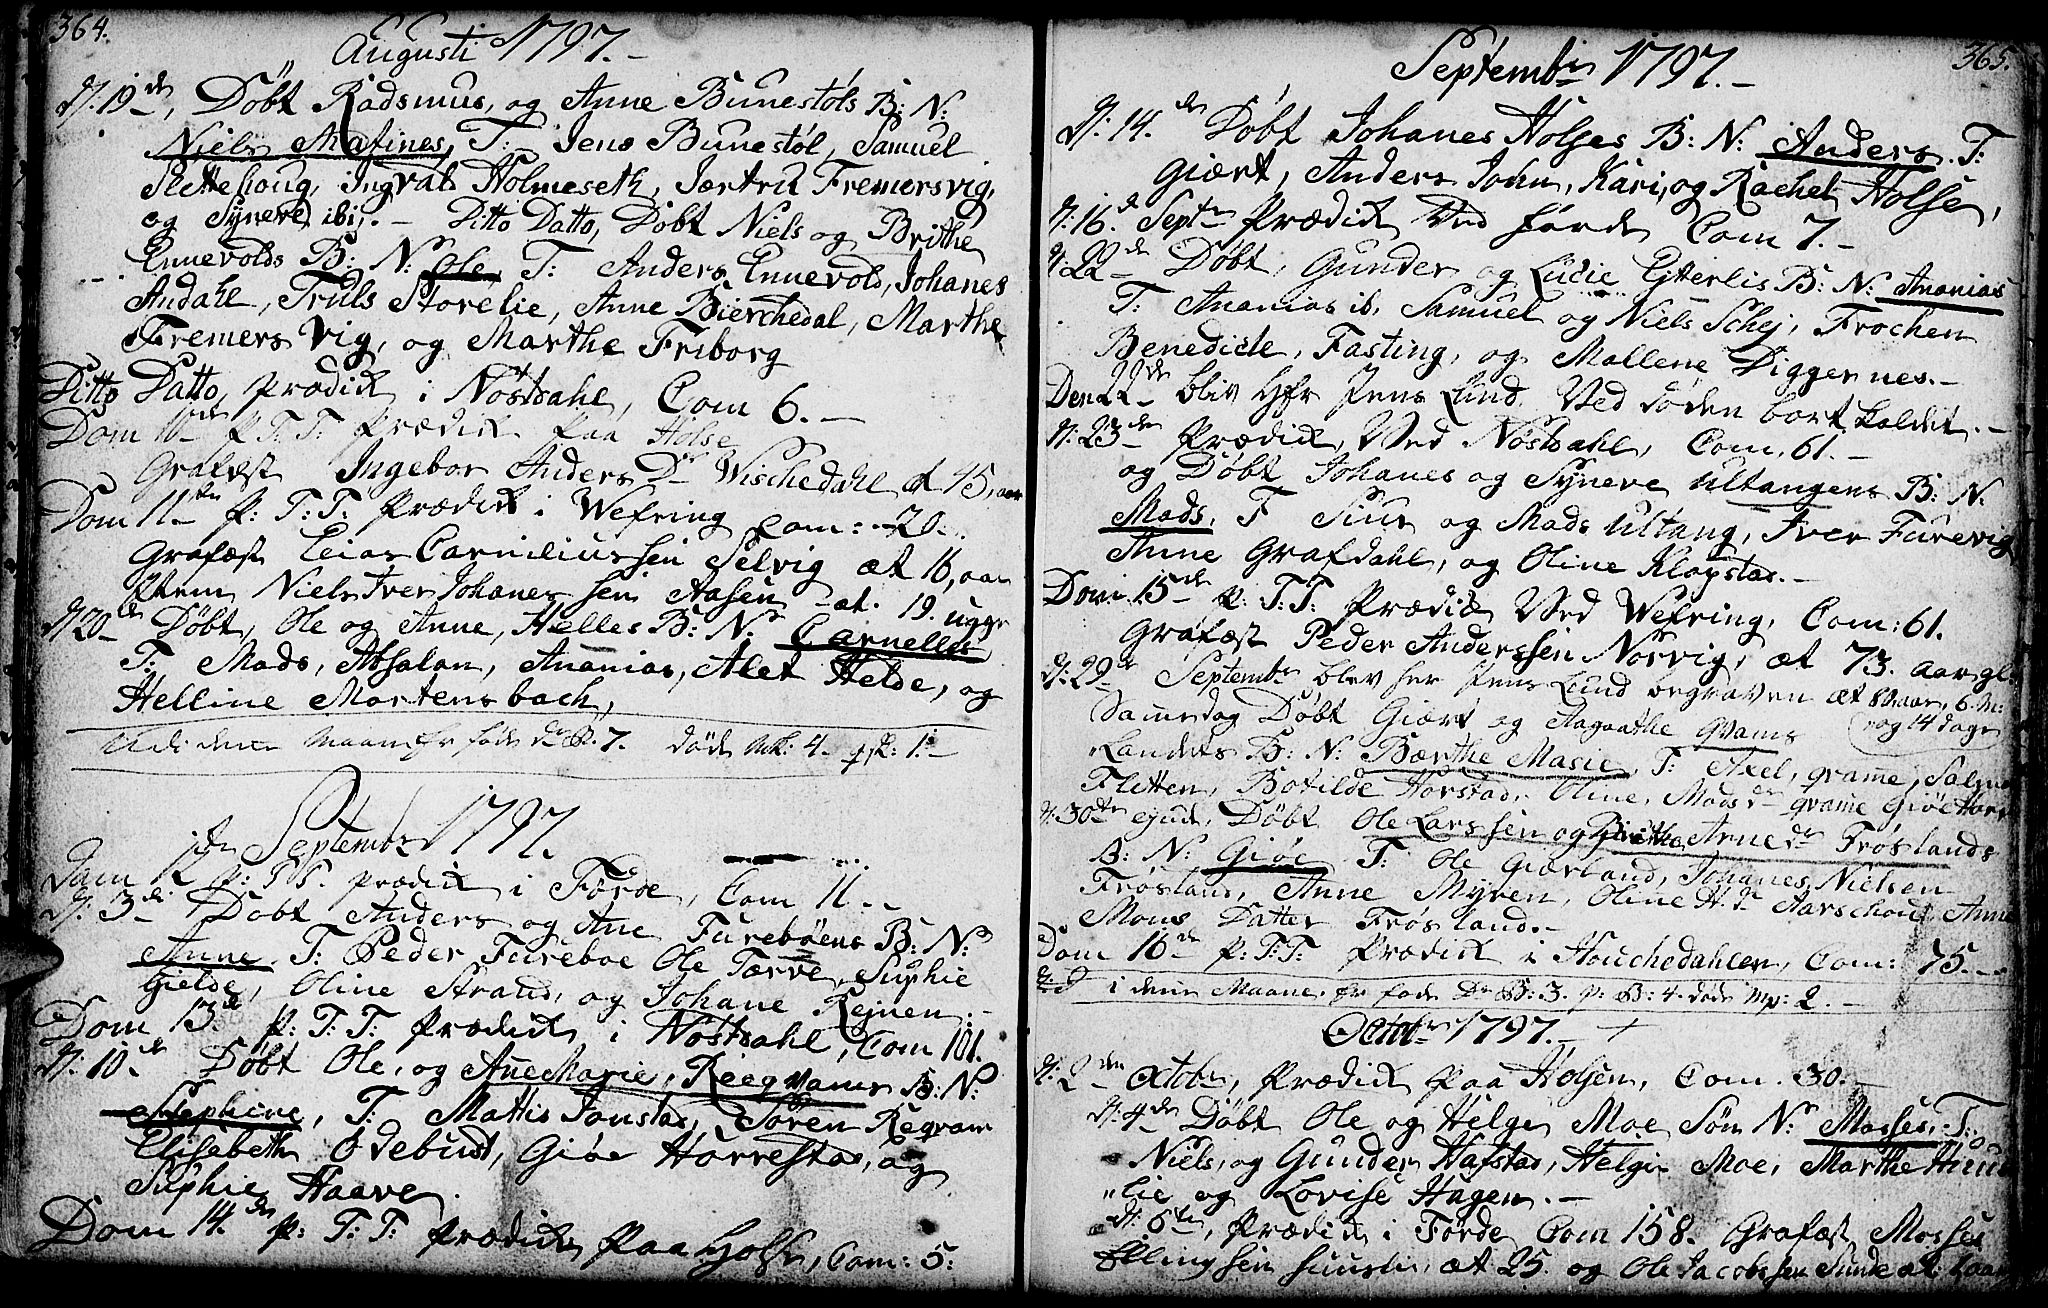 364.
Augusti 1797.-
D. 19de, Døbt Radsmus, og Anne Bunestøls B: N:
Niels Matines, T: Jens Bunestøl, Samuel
Slettehoug, Ingval Holmeseth, Jærtru Fremersvig,
og Syneve ibi,. - Ditto Datto, Døbt Niels og Brithe
Ennevolds B: N: Ole, T: Anders Ennevold, Johanes
Andahl, Truls Storelie, Anne Bierchedal, Marthe
Fremers Vig, og Marthe Friborg
Ditto Datto, Prædik i Nøstdahl, Com 6. -
Dom 10de p T: T: Prædik paa Holse
Grafæst Ingebor Anders Dr Wischedahl æt 45, aar
Dom 11te p: T: T: Prædik i Wefring Com: 20.
Grafæst Elias Corniliussen Selvig æt 16, aar
Item Niels Iver Johanes sen Aasen æt. 19. uger
D 20de Døbt, Ole og Anne, Helles B: N: Cornelles
T: Mads, Absalon, Ananias, Alet Helde, og
Helline Mortensbach,
denne Maaner føde 7. døde Mk: 4. qk: 1.-
Septembr 1797.
Dom 12 p: T: T. prædik i Førde, Com 11.-
D. 3de Døbt Anders og Ane Furebøens B: N:
Anne. T: Peder Fureboe Ole Tærve, Suphie
Gielde, Oline Strand, og Johane Rejnen.-
Dom 13de p: T: T: Prædik i Nøstdahl, Com 101.
D. 10de Døbt Ole, og AneMarie, Reeqvams B: N:
Sephine, T: Mattis Jonstad, Søren Reqvam
Elisebeth Odebust, Giøe Horrestad, og
Suphie Haave.
Dom 14.de p: T: T: Prædik paa Holse, Com: 5.
365.
Septembr 1797.-
D. 14.de Døbt Johanes Holses B: N: Anders. T:
Giært, Anders John, Kari, og Rachel Holse,
D. 16.de Septr Prædik Ved Førde Com 7.-
D. 22de Døbt, Gunder og Ludie Efterlis B: N: Ananias
T: Ananias ib, Samuel og Niels Schej, Frochen
Benedicte, Fasting, og Mallene Diggernes.-
Den 22de bliv Hr Jens Lund Ved døden bort kaldet.-
D. 23de Prædik, Ved Nøstdahl, Com. 61.-
og Døbt Johanes og Syneve Ultangens B: N:
Mads, T Siur og Mads Ultang, Iver Furevig
Anne Grafdahl, og Oline Klopstad.-
Dom. 15de p: T: T: Prædik Ved Wefring, Com: 61.
Grafæst Peder Anderssen Norvig, æt 73. aar gl.
D. 29de Septembr blev her Jens Lund begraven æt aar, 6. M:
og 14 dage
Samedag Døbt Giært og Aagaathe Qvams
Landets B: N: Bærthe Marie, T: Axel, grame,
Fletten, Botilde Horstad, Oline, Mads dr grame Giøe Horst
D. 30te ejusd, Døbt Ole Larssen og Birithe Arne dr Frøslands
B: N: Giøe T: Ole Giærland, Johanes Nielsen
Frøsland, Anne Myren, Oline Aarschoug, Anne
Mons Datter Frøsland.-
Dom 16de p: T: T: Prædik i Houchedahlen, Com: 75.-
i denne Maane. er føde Dr B: 3. p: B: 4. døde Mp: 2.-
Octbr 1797.-
D. 2den Octobr, Prædik paa Holsen, Com. 30.-
D. 4de Døbt Ole og Helge Moe Søn Nr Mosses. T:
Niels, og Gunder Hafstad, Helge Moe, Marthe Huus
"lie og Lovise Hagen.-
D. 6te, Prædik i Førde Com 158. Grafæst Mosses
Ellingssen æt 25. og Ole Jacobssen Sunde æt: aar